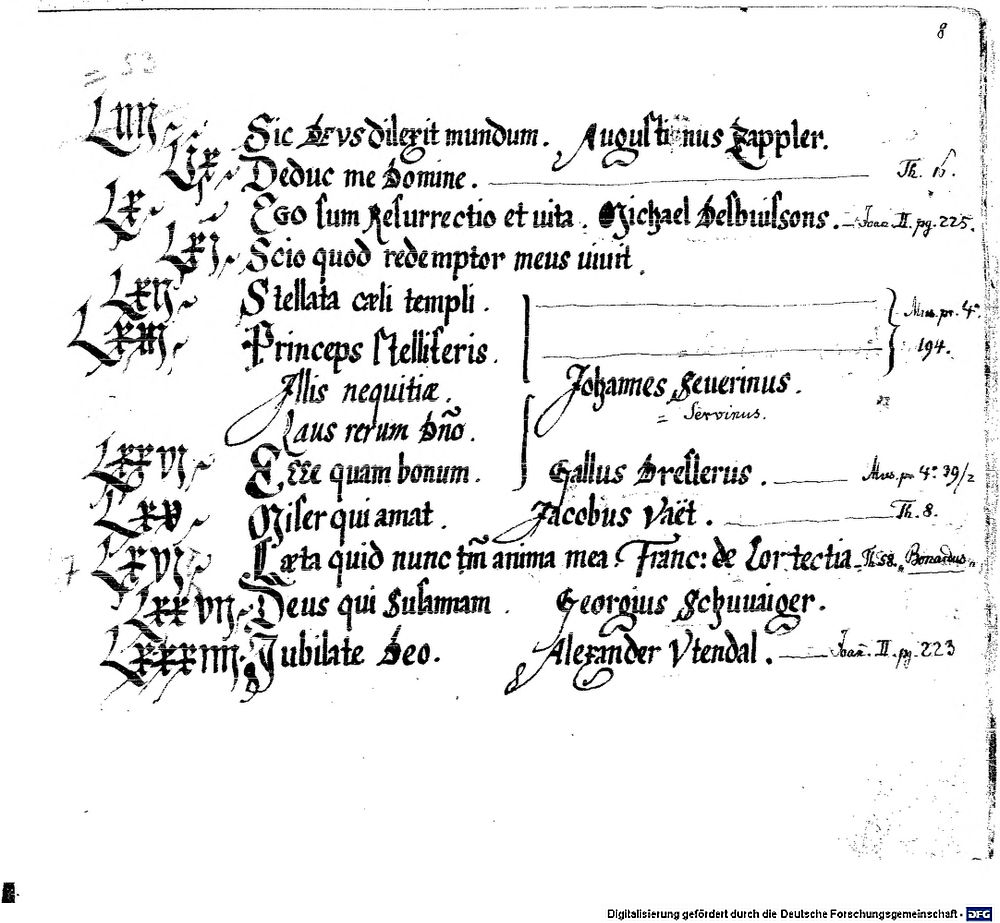 8
= 53
LIII Sic DEVS dilexit mundum. Augustinus Zappler.
LIX Deduc me Domine. Th. 16.
LX EGO sum Resurrectio et uita. Michael Desbuissons. Joan. II. pg. 225.
LXI Scio quod redemptor meus uiuit.
LXII Stellata cæli templi. Mus. pr. 4°
LXIII Princeps stelliferis. 194.
Illis nequitiæ. Johannes Seuerinus.
Laus rerum dño. = Servinus.
LXXVI Ecce quam bonum. Gallus Dreslerus. Mus. pr. 4° 39/2
LXV Miser qui amat. Jacobus Vaët. Th. 8.
LXVI Læta quid nunc tm̄ anima mea Franc: de Lortectia Th. 58. "Bonardus"
LXXVII Deus qui Susannam. Georgius Schuuaiger.
LXXXIIII Jubilate Deo. Alexander Vtendal. Joan. II. pg. 223
Digitalisierung gefördert durch die Deutsche Forschungsgemeinschaft - DFG